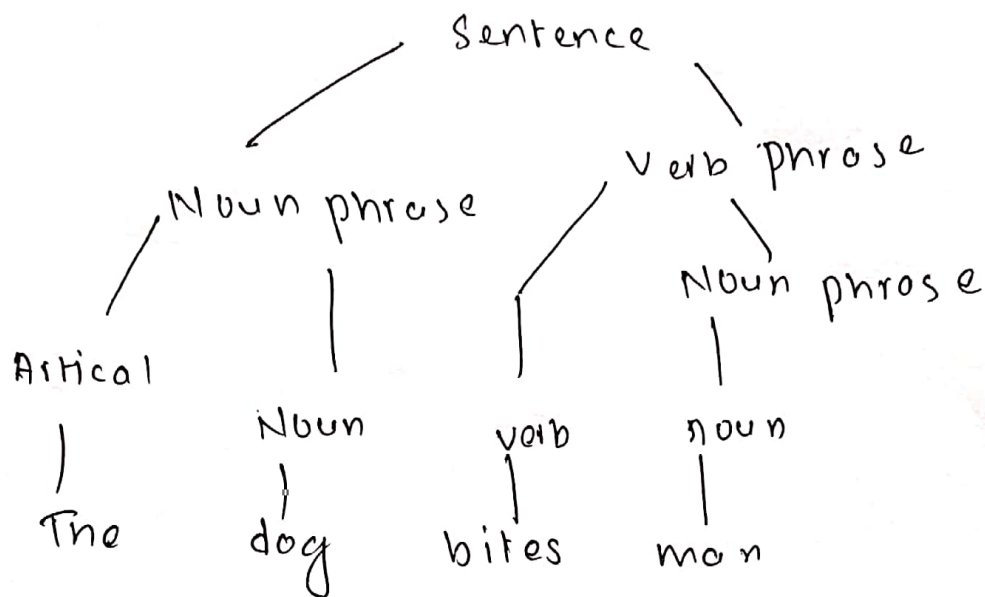 Sentence
Noun phrase Verb phrase
Noun phrase
Artical
Noun verb noun
The dog bites man